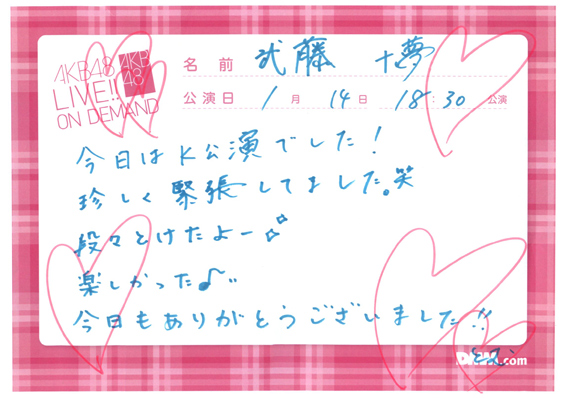 AKB48
LIVE!!
ON DEMAND
AKB
48
名前 武藤 十夢
公演日 1月 14日 18:30 公演
今日はK公演でした!
珍しく緊張してました。笑
段々とけたよー
楽しかった♪
今日もありがとうございました!!
とむ
.com